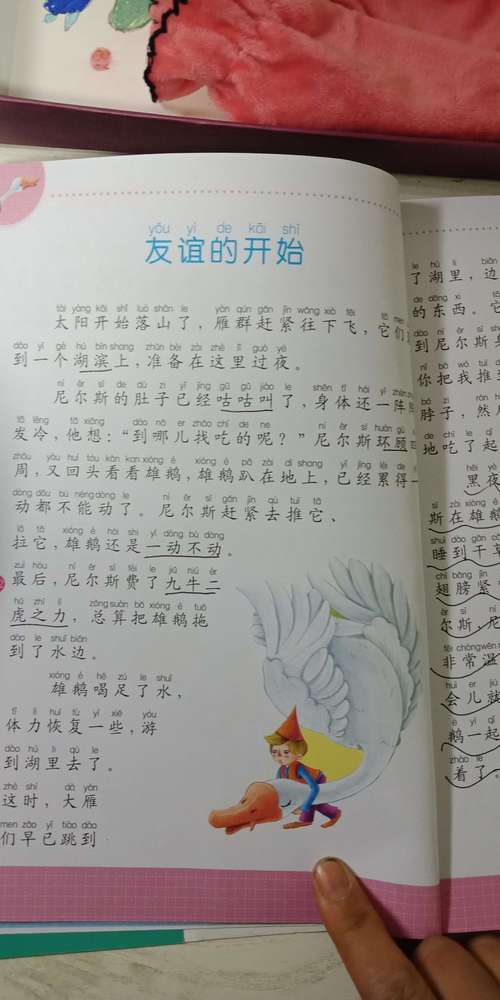 yǒu yì de kāi shǐ
友谊的开始
tài yáng kāi shǐ luò shān le yàn qún gǎn jǐn wǎng xià fēi tā men
太阳开始落山了，雁群赶紧往下飞，它们
dào yí gè hú bīn shang zhǔn bèi zài zhè lǐ guò yè
到一个湖滨上，准备在这里过夜。
ní ěr sī de dù zi yǐ jīng gū gū jiào le shēn tǐ hái yí zhèn
尼尔斯的肚子已经咕咕叫了，身体还一阵
fā lěng tā xiǎng dào nǎ er zhǎo chī de ne ní ěr sī huán gù
发冷，他想：“到哪儿找吃的呢？”尼尔斯环顾
zhōu yòu huí tóu kàn kan xióng é xióng é pā zài dì shang yǐ jīng lèi dé
周，又回头看看雄鹅，雄鹅趴在地上，已经累得一
dòng dōu bù néng dòng le ní ěr sī gǎn jǐn qù tuī tā
动都不能动了。尼尔斯赶紧去推它、
lā tā xióng é hái shi yí dòng bù dòng
拉它，雄鹅还是一动不动。
zuì hòu ní ěr sī fèi le jiǔ niú èr
最后，尼尔斯费了九牛二
hǔ zhī lì zǒng suàn bǎ xióng é tuō
虎之力，总算把雄鹅拖
dào le shuǐ biān
到了水边。
xióng é hē zú le shuǐ
雄鹅喝足了水，
tǐ lì huī fù yì xiē yóu
体力恢复一些，游
dào hú li qù le
到湖里去了。
zhè shí dà yàn
这时，大雁
men zǎo yǐ tiào dào
们早已跳到
le hú li biān
了湖里，边
de dōng xi tā
的东西。它
dào ní ěr sī
到尼尔斯身
nǐ bǎ wǒ tuī
你把我推到
bó zi rán
脖子，然
de chī le qǐ
地吃了起
hēi yè
黑夜
sī zài xióng é
斯在雄鹅
shuì dào gān cǎo
睡到干草
chì bǎng jǐn
翅膀紧
ěr sī ní
尔斯，尼
fēi cháng wēn
非常温
huì er jiù
会儿就
é yì qǐ
鹅一起
zháo le
着了。